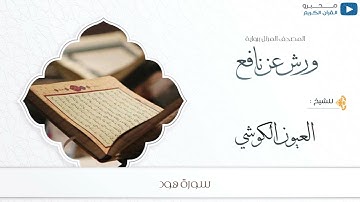 محبرو
القرآن الكريم
المصحف المرتل برواية
ورش عن نافع
للشيخ :
العيون الكوشي
سورة هود